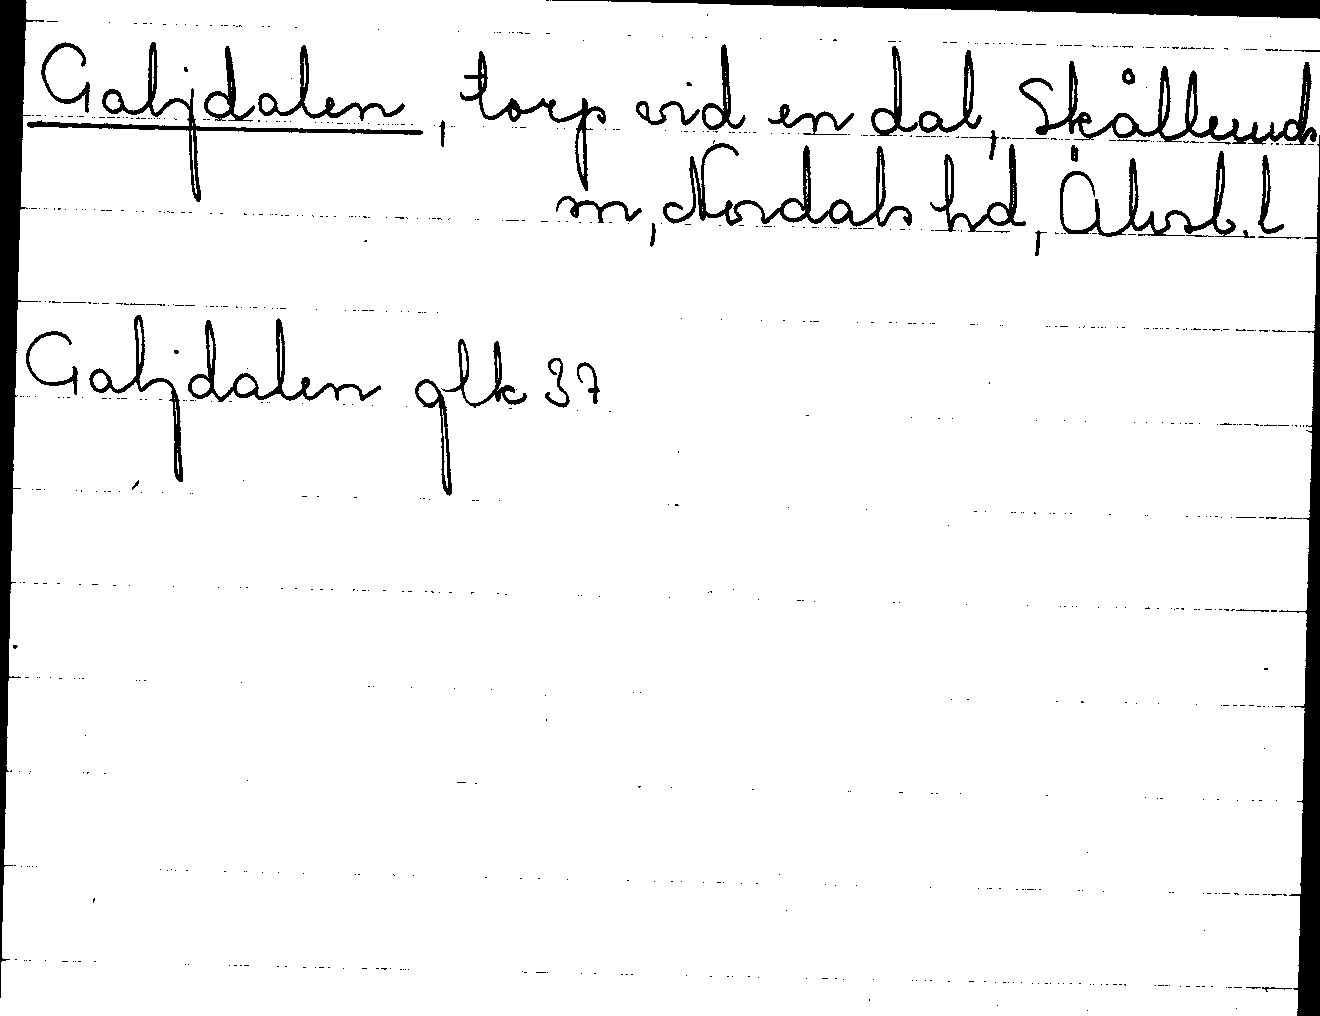 Galjdalen, torp vid en dal, Skålleruds
sn, Nordals hd, Älvsb. l
Galjdalen glk 37